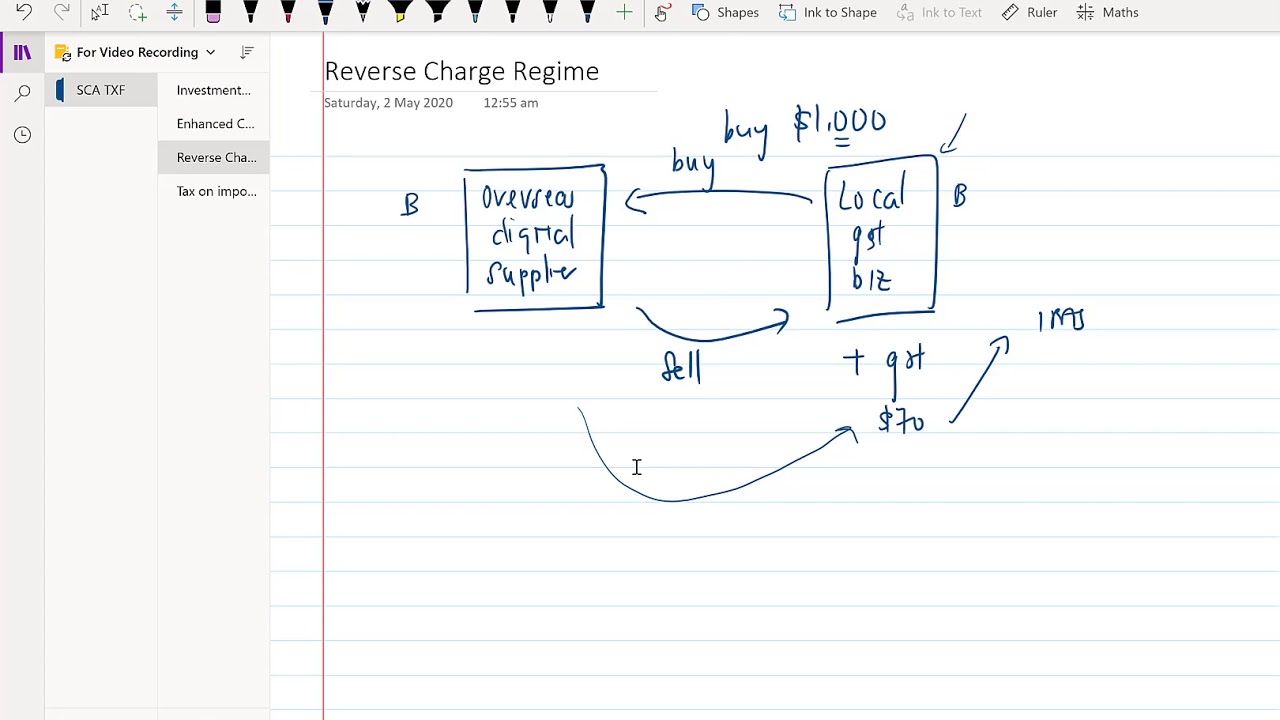 Shapes
Ink to Shape
Ink to Text
Ruler
Maths
For Video Recording
SCA TXF
Investment...
Enhanced C...
Reverse Cha...
Tax on impo...
Reverse Charge Regime
Saturday, 2 May 2020 12:55 am
buy $1,000
buy
B
Overseas
digital
supplier
Local
gst
biz
B
Sell
IRAS
+ gst
$70